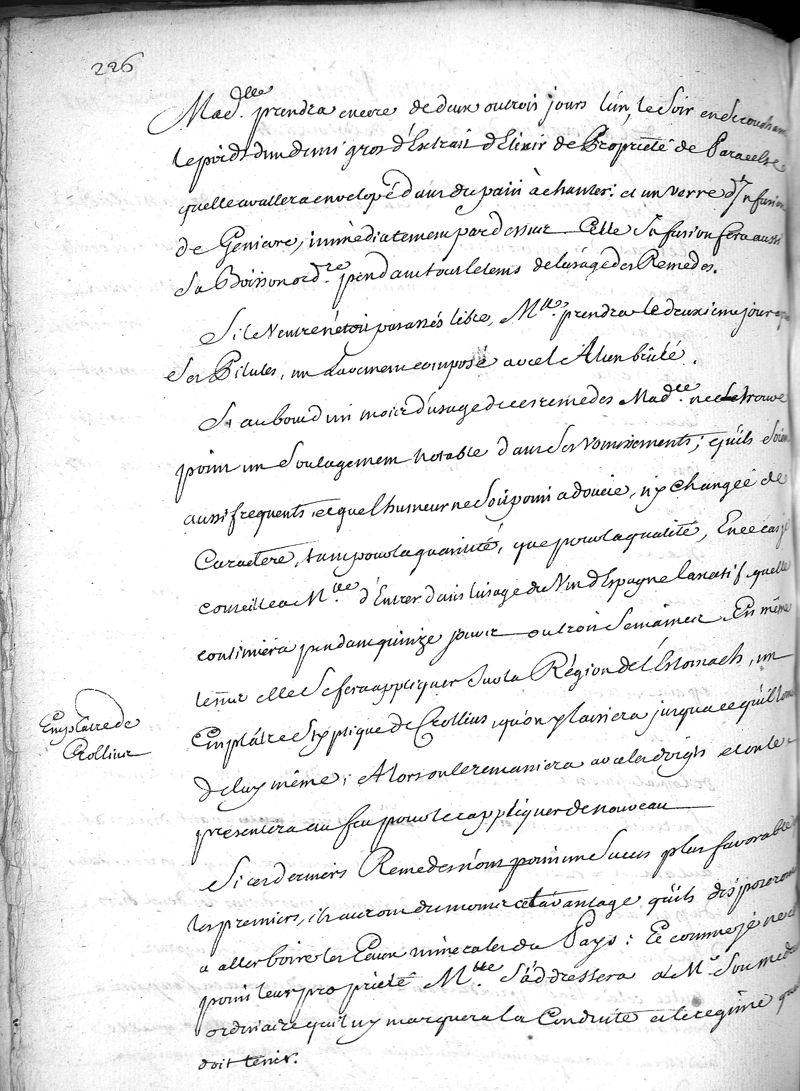 226
Mad.lle prendra encore de deux ou trois jours l'un, le Soir en Se couchant
le poids d'un demi gros d'Extrait d'Elixir de Propriété de Paracelse
quelle avallera envelopé dans du pain à chanter: et un verre d'Infusion
de Genievre, immédiatement par dessus. Cette Infusion fera aussi
Sa Boisson ord.re pendant tout le tems de lusage des Remedes.
Si le Ventre n'étoit pas assés libre, M.lle prendra le deuxieme jour
Ses Pilules, un Lavement composé avec le
Si au bout d'un mois d'usage de ces remedes Mad.lle ne Se trouve
point un Soulagement notable dans Ses Vomissements; qu'ils Soient
aussi frequents, et que l'humeur ne Soit point adoucie, ny changée de
Caractere, tant pour la quantité, que pour la qualité, En ce cas je
conseille a M.lle d'Entrer dans l'usage du Vin d'Espagne laxatif, quelle
continüera pendant quinze jours ou trois Semaines. En même
tems elle Se fera appliquer Sur la Région de l'Estomach, un
Emplâtre Styptique de Crollius, qu'on y laissera jusqua ce qu'il tombe
de luy même; Alors on le remaniera avec les doigts et on le
presentera au feu pour le reappliquer de nouveau
Emplatre de
Crollius
Si ces derniers Remedes n'ont point un Succes plus favorable
les premiers, ils auront du moins cet avantage qu'ils disposeront
a aller boire les Eaux minerales du Pays: Et comme je ne
point leur proprieté M.lle S'addressera a M.r Son medecin
ordinaire qui luy marquera la Conduite et le regime
doit tenir.